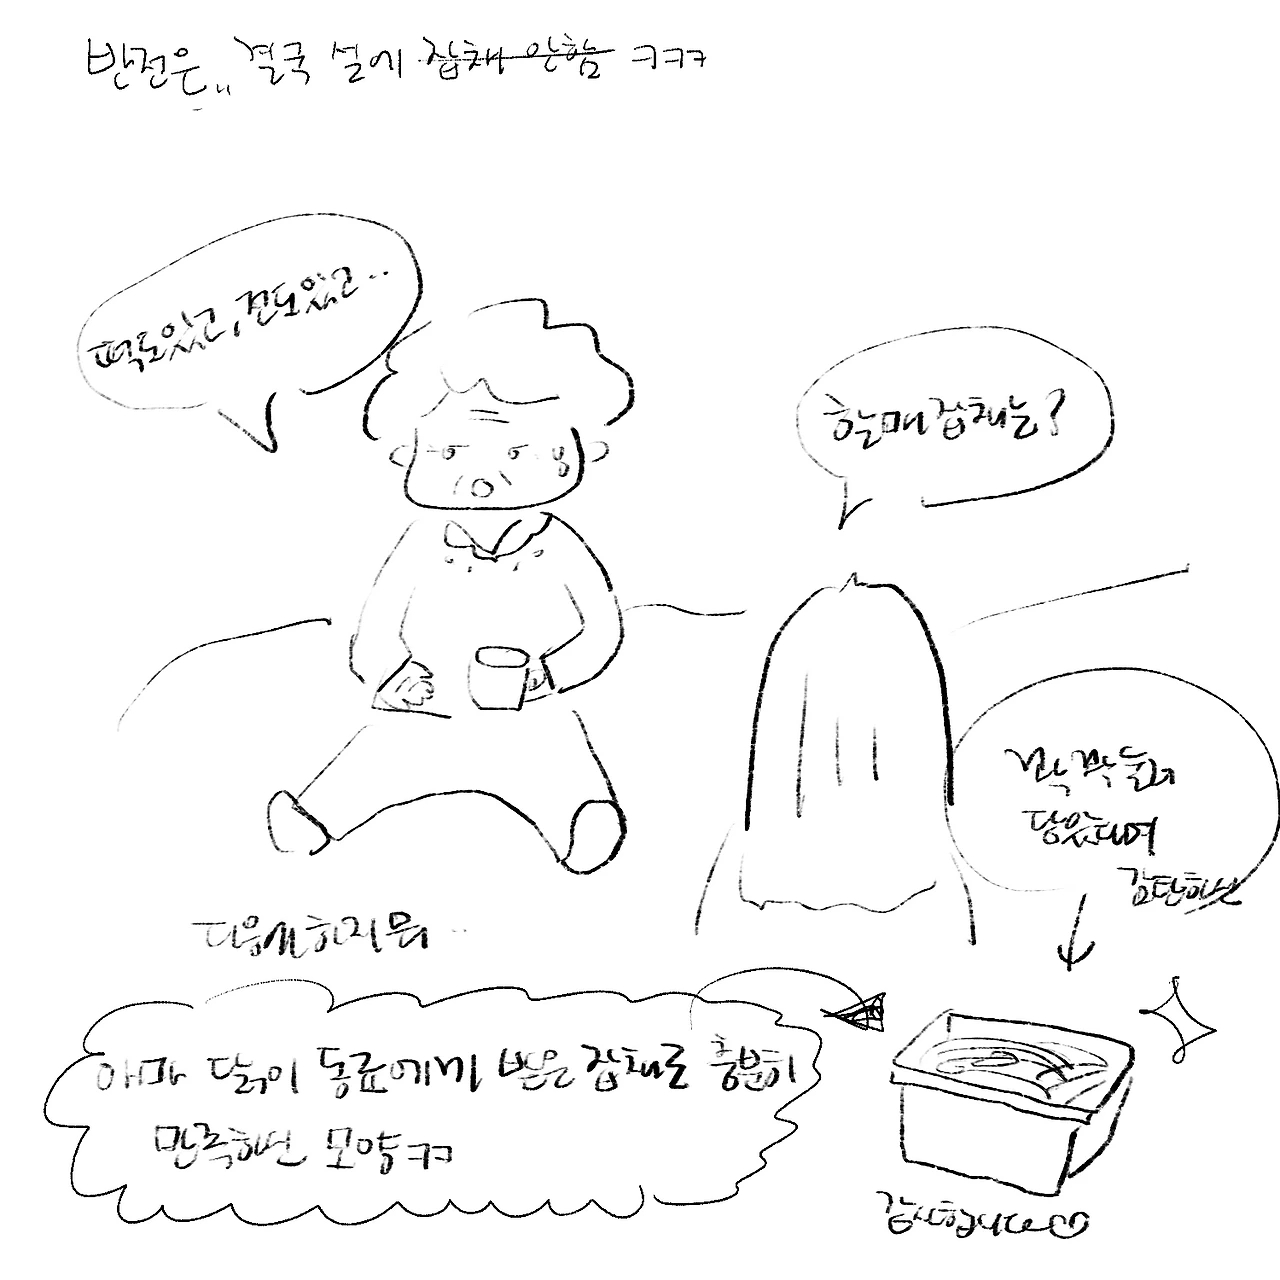 반전은,, 결국 설에 잡채 안함 ㅋㅋㅋ
떡도있고, 전도있고..
할매 잡채는?
꽉꽉눌러
담았다며
감탄하신
다음에하지뭐..
아마 닭이 동료에게 받은 잡채로 충분히
만족하신 모양ㅋㅋ
감사합니다♡